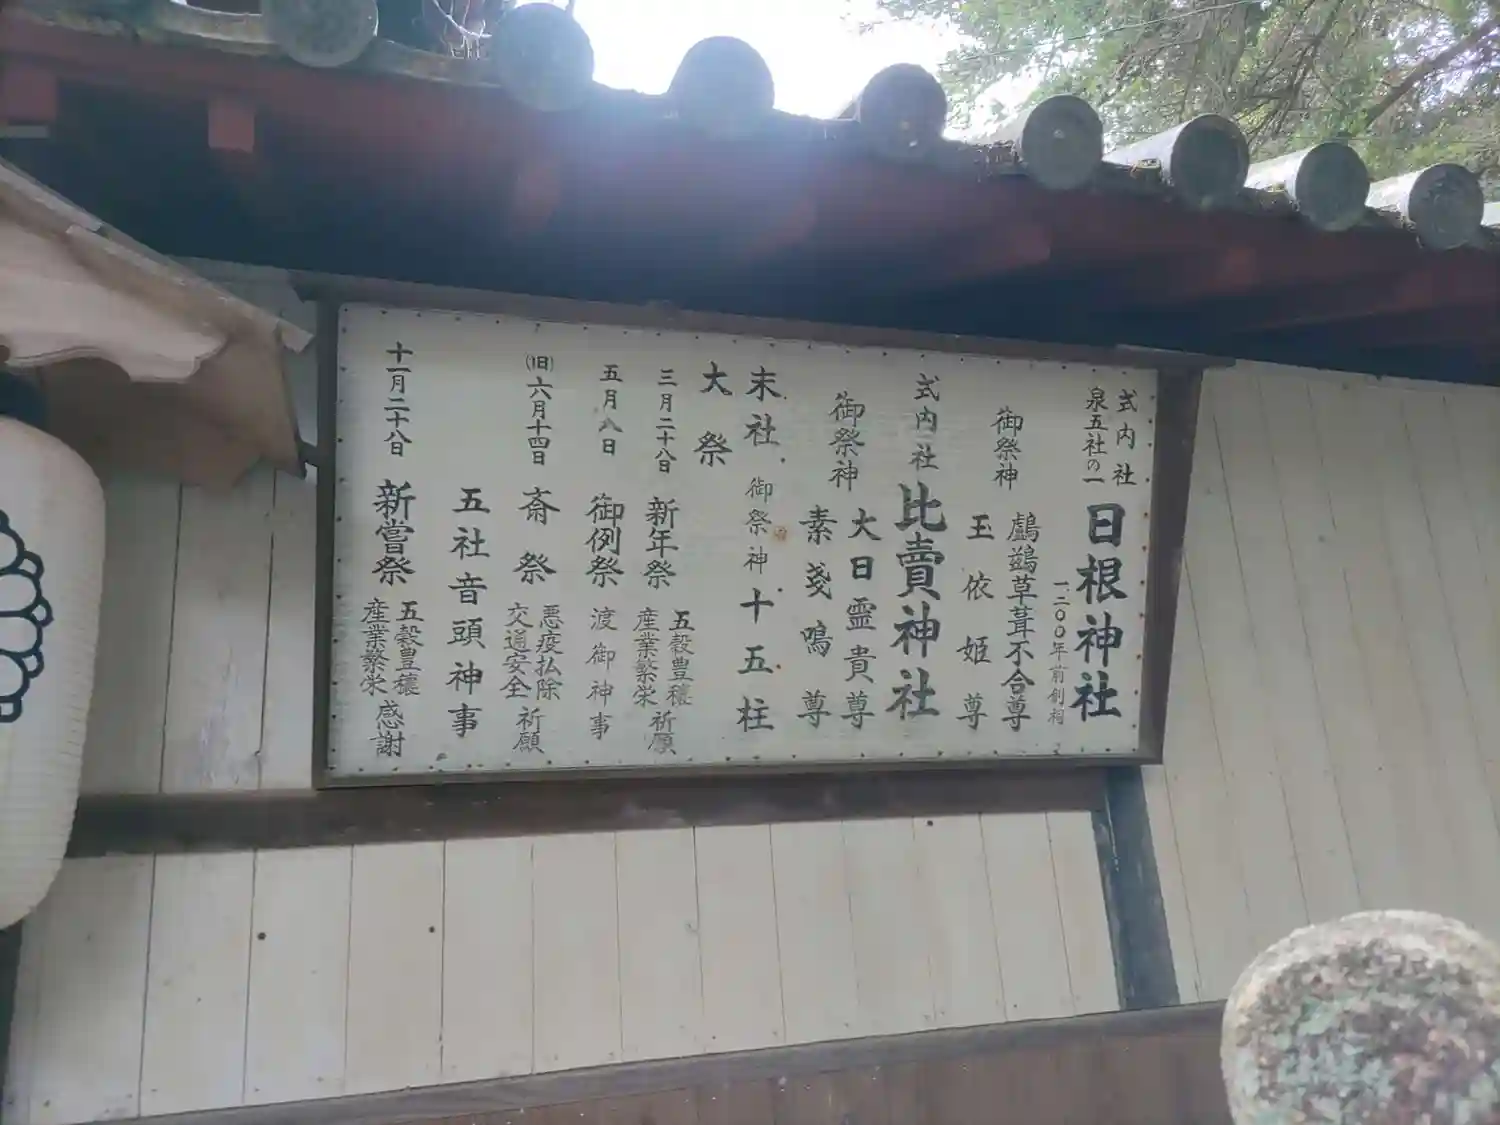 式内社
泉五社の一
日根神社
一、二〇〇年前創祠
御祭神
鸕鷀草葺不合尊
玉依姫尊
式内社
比賣神社
御祭神
大日霊貴尊
素戔鳴尊
末社 御祭神 十五柱
大祭
三月二十八日 新年祭
五穀豊穣
産業繁栄
祈願
五月八日 御例祭 渡御神事
(旧)六月十四日 斎祭
悪疫払除
交通安全
祈願
五社音頭神事
十一月二十八日 新嘗祭
五穀豊穣
産業繁栄
感謝